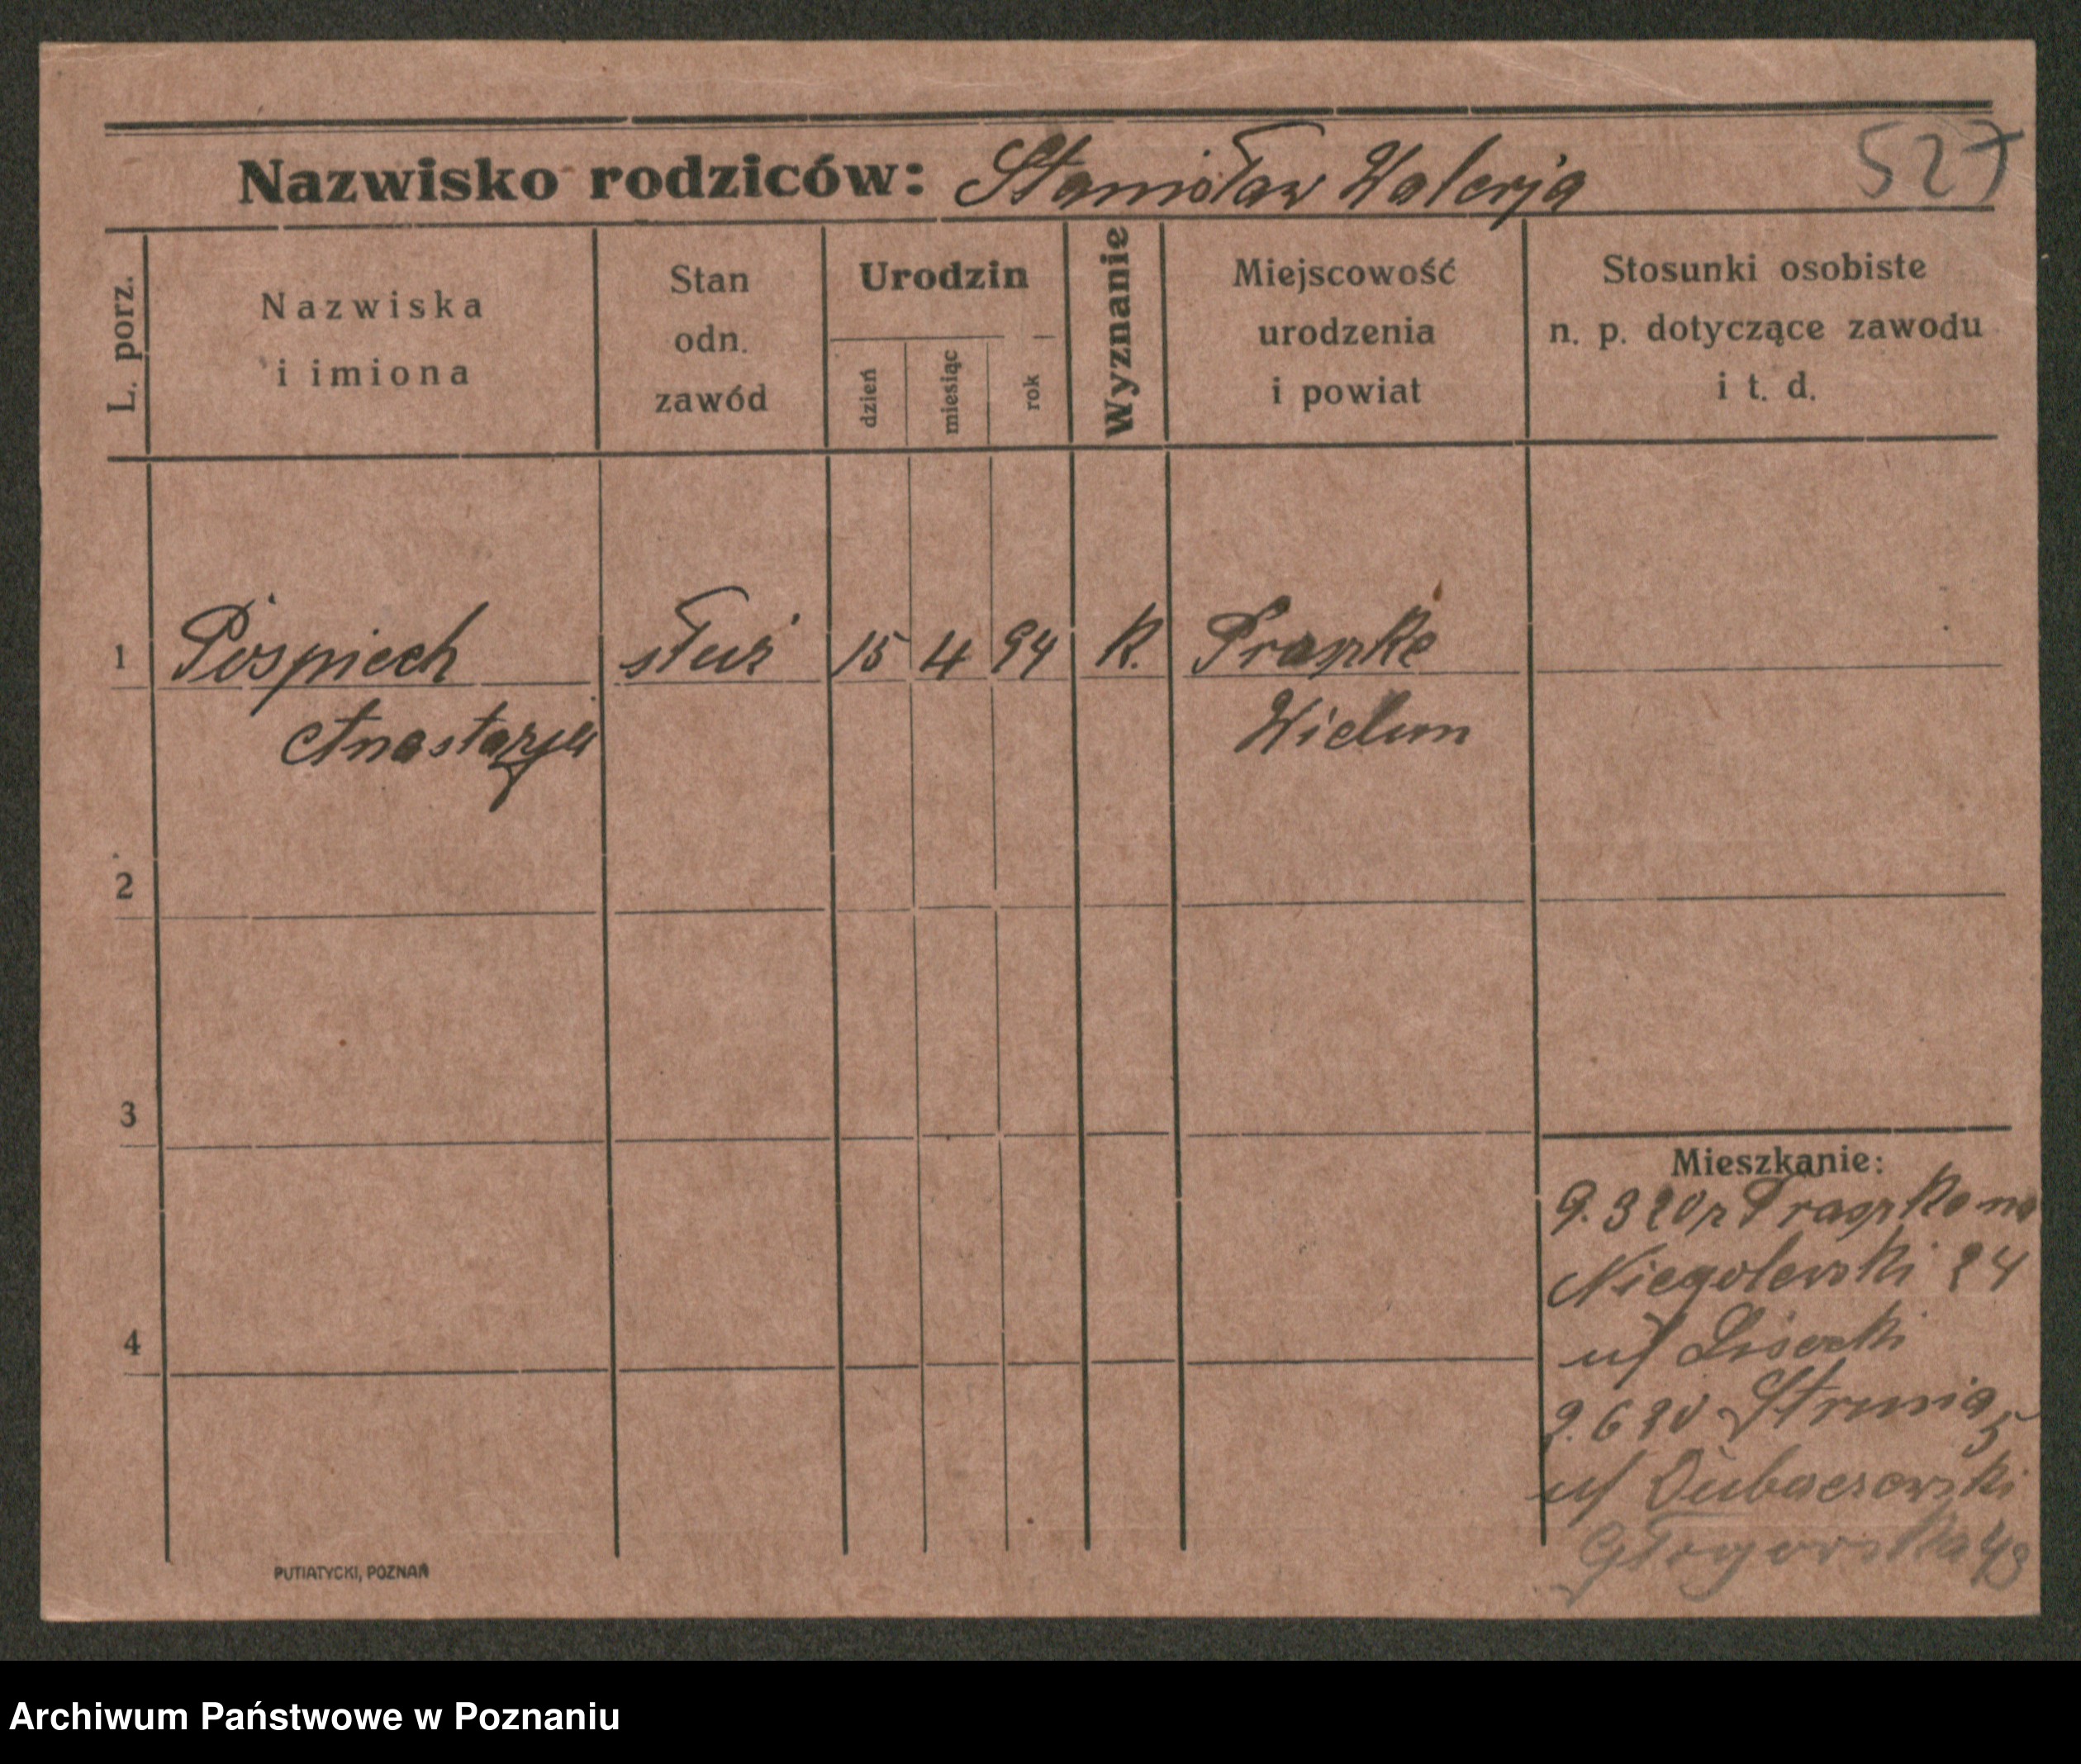 Nazwisko rodziców: Stanisław Walerja 527
L. porz.
Nazwiska
i imiona
Stan
odn.
zawód
Urodzin
dzień
miesiąc
rok
Wyznanie
Miejscowość
urodzenia
i powiat
Stosunki osobiste
n. p. dotyczące zawodu
i t. d.
1 Pośpiech służ 15 4 94 K. Praszke
Anastazja Wielun
2
3
4
Mieszkanie:
9. 3 20 z Praszka na
Niegolewski 24
u/ Lisecki
2. 6 20 Strusia 5
u/ Dubaczewski
Głogowska 43
PUTIATYCKI, POZNAŃ
Archiwum Państwowe w Poznaniu